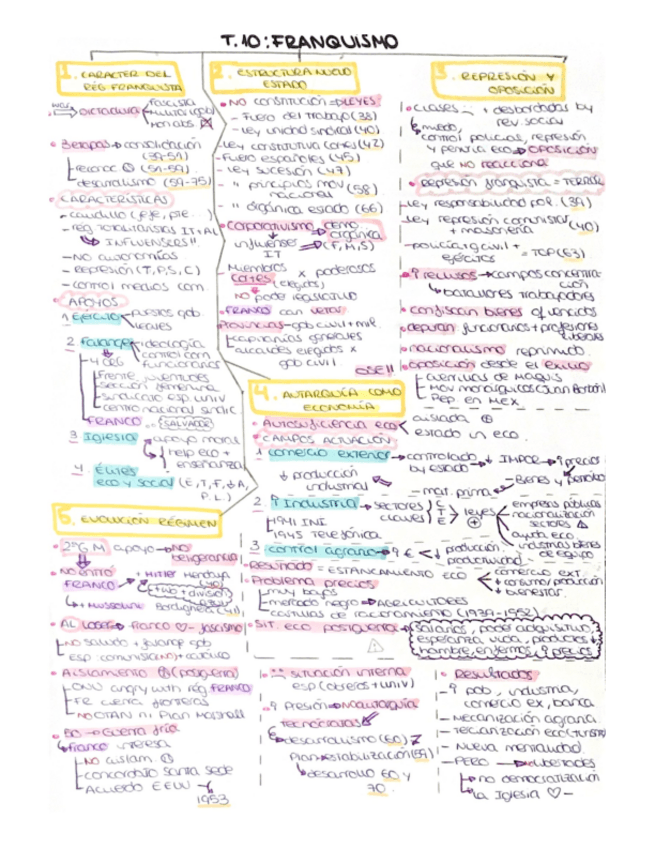 T.10: FRANQUISMO
1. CARACTER DEL
RÉG FRANQUISTA
DICTADURA
fascista
militar
3 etapas → consolidación
(39-51)
reconoc (51-59)
desarrollismo (59-75)
CARACTERISTICAS
- caudillo (
- reg totalitarios IT+AL
INFLUENCERS!!
- NO autonomías
- REPRESIÓN (T, P, S, C)
- CONTROL medios com
APOYOS
1 Ejército
puestos gob
leyes
2 Falange
ideología
control com
funcionarios
4 ORG
Frente juventudes
Sección femenina
sindicato esp. univ
centro nacional sindic.
FRANCO
SALVADOR
3. Iglesia
apoyo moral
help eco +
enseñanza
4. Élites
eco y social
P.L.)
2. ESTRUCTURA NUEVO
ESTADO
NO constitución → LEYES
- Fuero del trabajo (38)
- Ley unidad sindical (40)
- Ley constitutiva cortes (42)
- Fuero españoles (45)
- Ley sucesión (47)
- " principios mov
nacional (58)
- " orgánica estado (66)
CORPORATIVISMO
demo
orgánica
influenser
IT
(F, M, S)
- Miembros
CORTES
(elegidos)
x poderosos
NO poder legislativo
FRANCO can vetar
Provincias - gob civil + mil
capitanías generales
alcaldes elegidos x
gob civil
OSE!!
3. REPRESIÓN Y
OPOSICIÓN
clases
+ desbordadas by
rev. social
miedo,
control policías, represión
y penuria eco → OPOSICIÓN
que NO reacciona
Represión franquista = TERROR
Ley responsabilidad pol. (39)
Ley represión comunistas
+ masonería (40)
- policía, g civil +
ejércitos
= TOP (63)
↑ reclusos → campos concentra-
ción
batallones trabajadores
confiscan bienes
depuran funcionarios + profesores
nacionalismo reprimido.
oposición desde el exilio
Guerrillas de Maquis
Mov monárquicos (Juan Borbón)
Rep. en Mex
4. AUTARQUÍA COMO
ECONOMÍA
Autosuficiencia eco
aislada
estado in eco.
CAMPOS ACTUACIÓN
1 comercio exterior → controlado
by estado → ↓ IMPOR → ↑ precios
- Bienes y
↓ producción
industrial
- mat. prima
2. ↑ Industria → sectores
claves
leyes
empresas públicas
nacionalización
sectores
ayuda eco
industrias bienes
de equipo
1941 INI
1945 Telefónica
3. control agrario
↓ producción.
productividad
Resultado = ESTANCAMIENTO ECO
comercio ext.
↓ consumo/producción
↓ bienestar.
Problema precios
muy bajos
mercado negro → AGRICULTORES
cartillas de racionamiento (1939-1952)
SIT. eco posguerra →
↓ salarios, poder adquisitivo
esperanza vida, productos
hambre, enfermos, ↑ precios
5. EVOLUCIÓN RÉGIMEN
2ª G.M apoyo → NO
beligerancia
NO entró
FRANCO
+ Hitler Hendaya
(40)
+ división
azul
+ Mussolini Bordighera (41)
AL LOSER → Franco ♡ - fascismo
NO saludo + falange gob
esp. comunista (NO) + católico
Aislamiento (posguerra)
ONU angry with rég FRANCO
FR cierra fronteras
NO OTAN ni Plan Marshall
→ Guerra fría
Franco interesa
NO aislam.
concordato Santa Sede
Acuerdo EEUU
1953
situación interna
esp (obreros + univ)
↑ Presión → NO autarquía
tecnócratas
desarrollismo (60)
Plan estabilización (59)
desarrollo 60 y
70.
Resultados
- ↑ pob, industria,
comercio ex, banca
- Mecanización agraria
- Terciarización eco (turista)
- Nueva mentalidad.
- PERO → libertades
no democratización
la Iglesia ♡ -